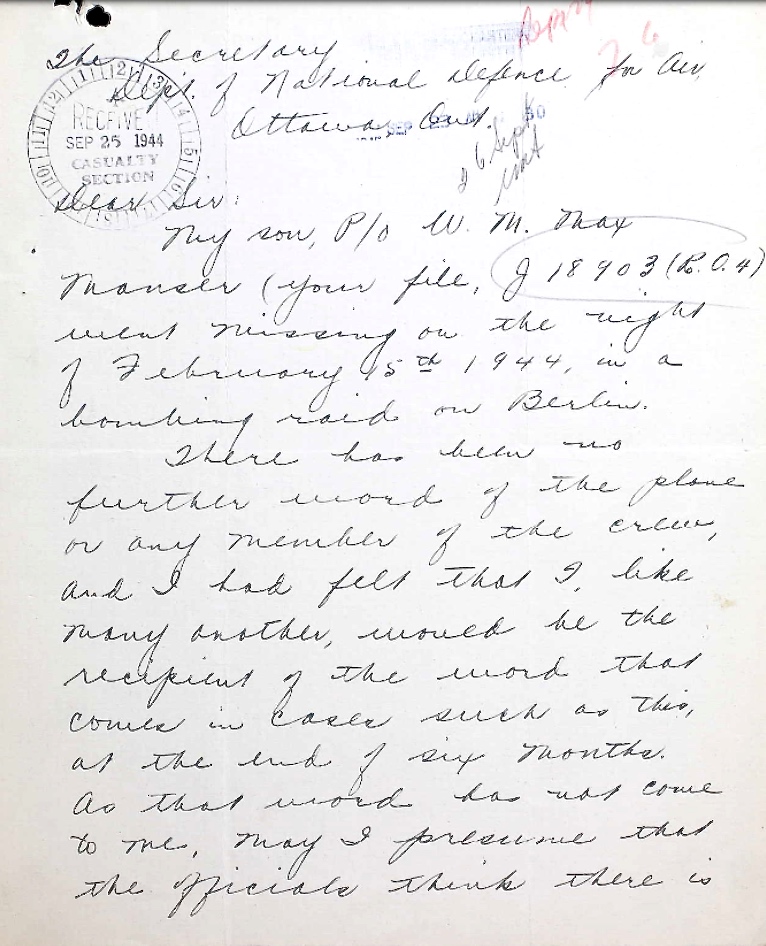 The Secretary
Dept. of National Defence for Air,
Ottawa, Ont.
RECEIVE
SEP 25 1944
CASUALTY
SECTION
SEP
26 Sept
Dear Sir:
My son, P/O W. M. Max
Manser (your file, J 18903 (R.O.4)
went missing on the night
of February 15th 1944, in a
bombing raid on Berlin.
There has been no
further word of the plane
or any member of the crew,
and I had felt that I, like
many another, would be the
recipient of the word that
comes in cases such as this,
at the end of six months.
As that word has not come
to me, may I presume that
the officials think there is